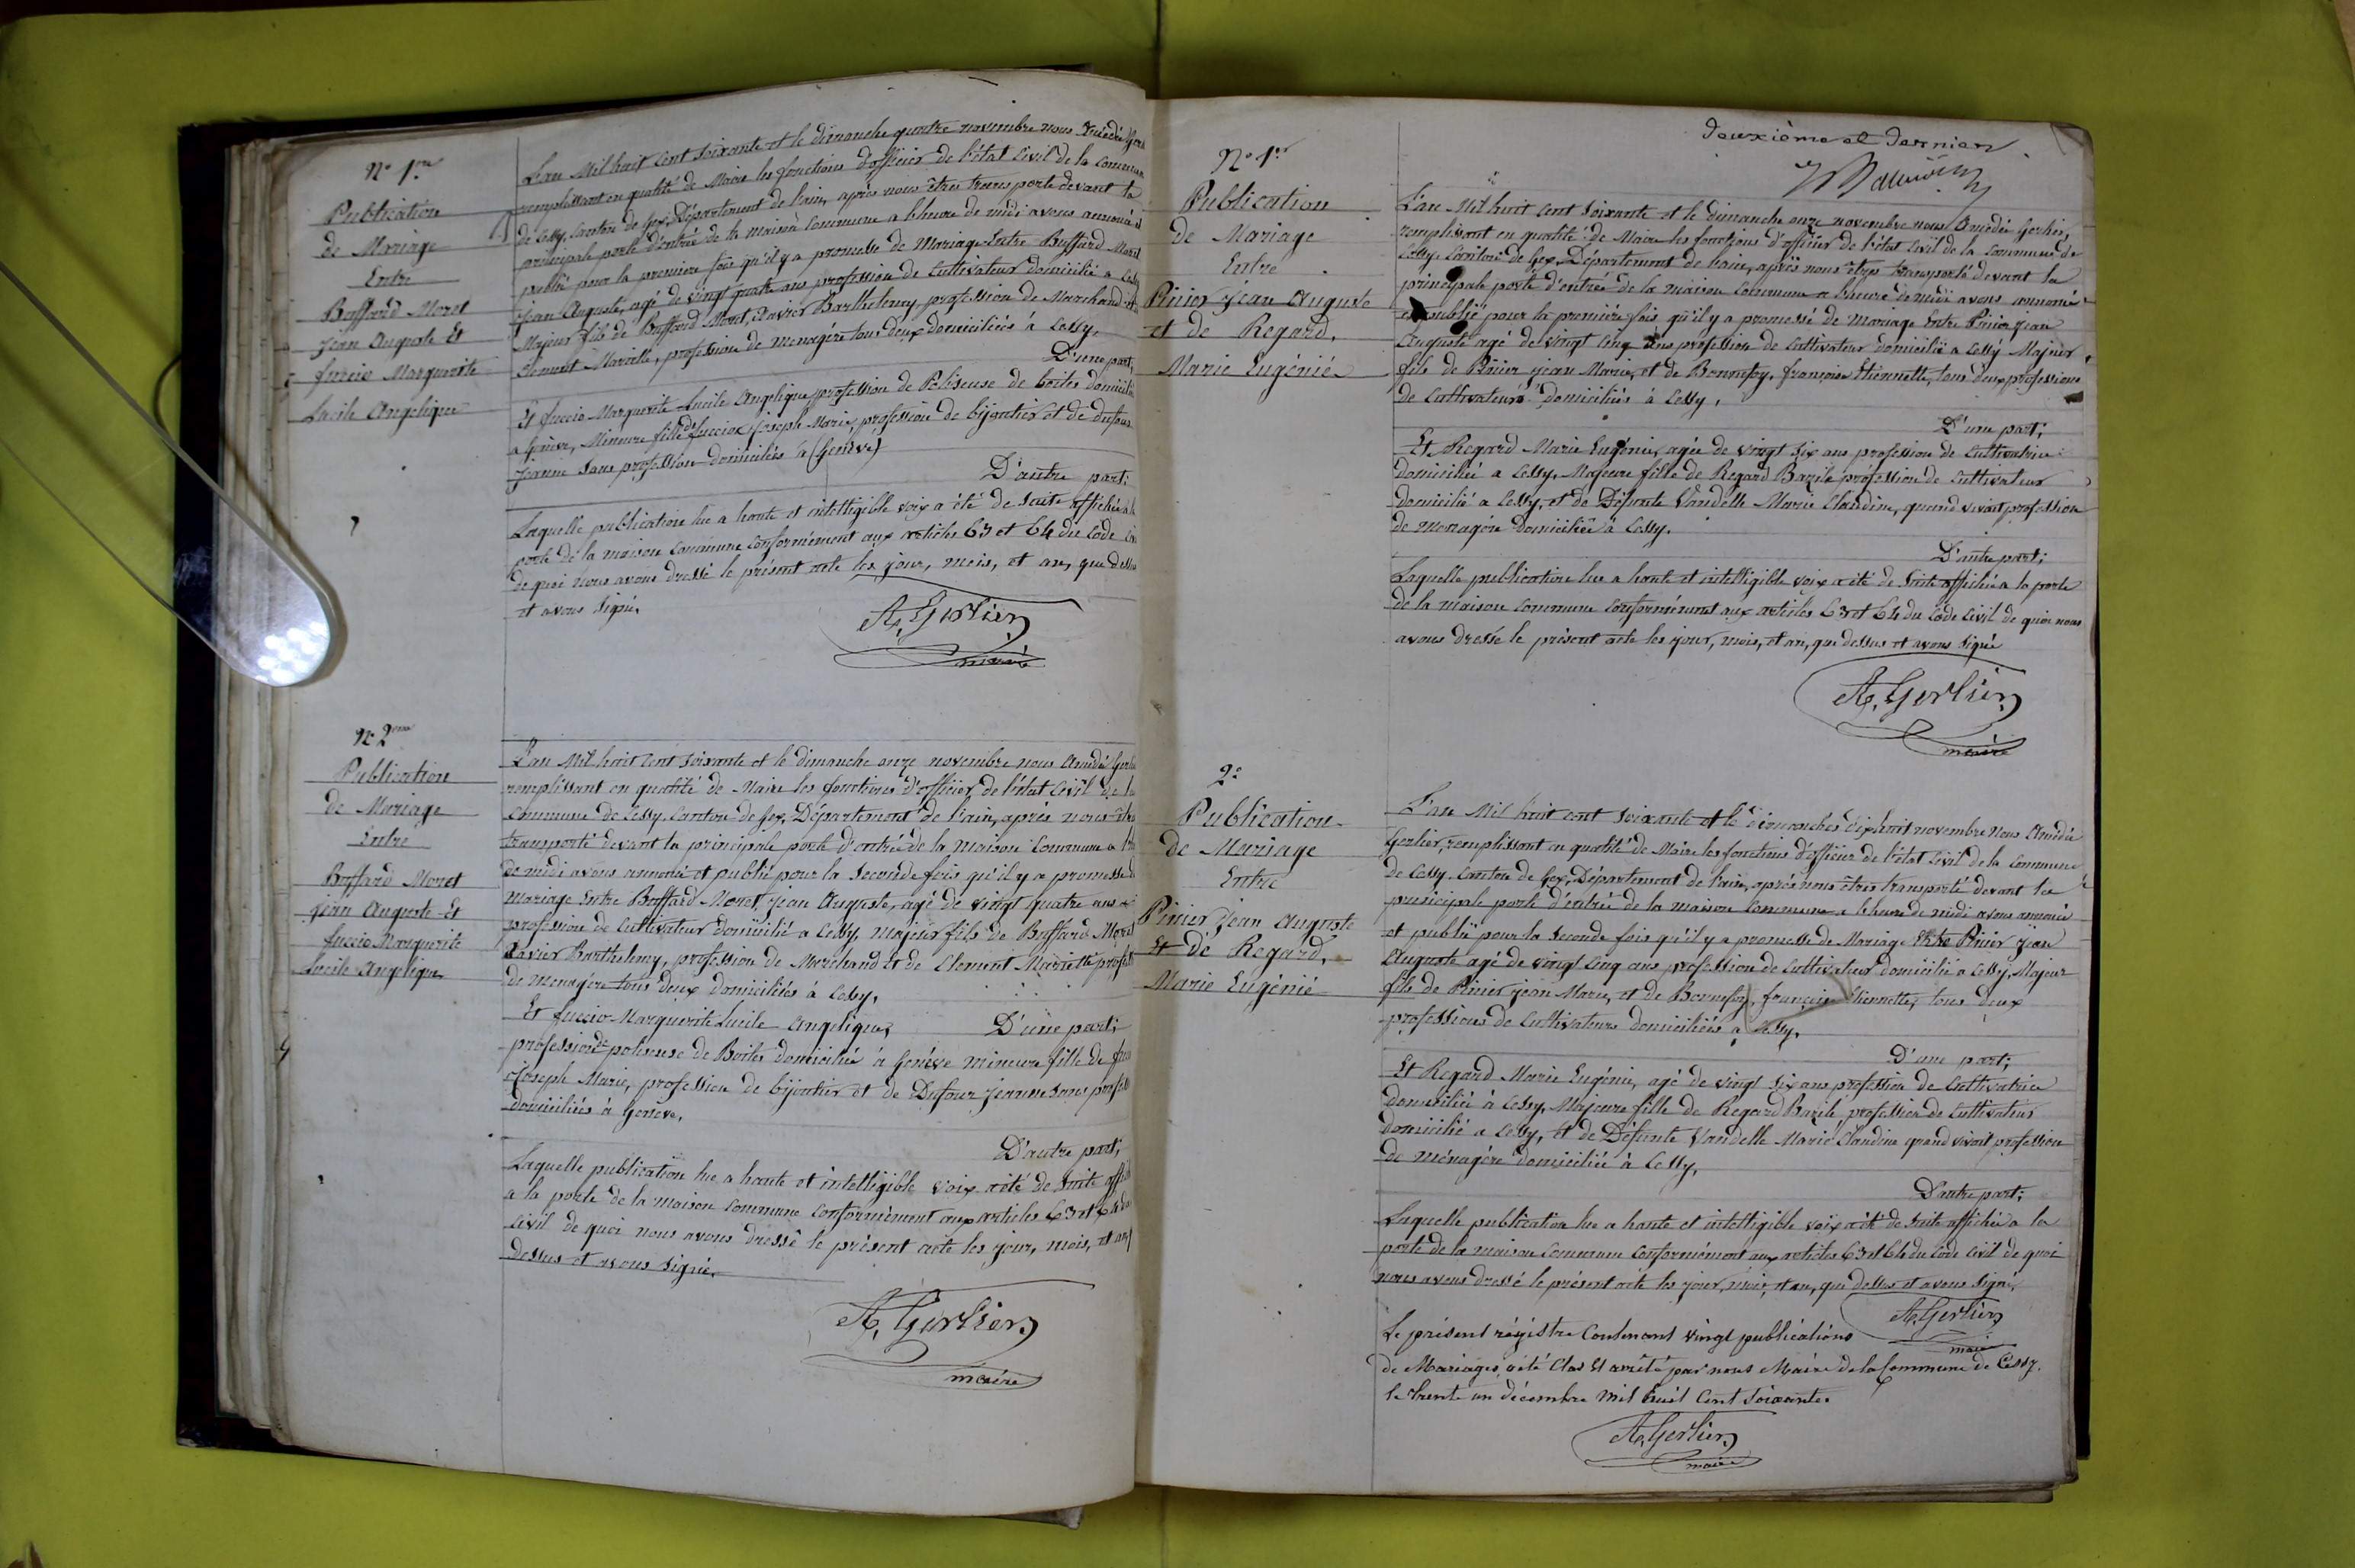 N° 1er
Publication
de Mariage
Entre
Buffard Moret
jean Auguste Et
fuccio Marguerite
Lucile Angelique
L'an Mil huit Cent Soixante et le dimanche quatre novembre nous Amédé
remplissant en qualité de Maire les fonctions d'officier de l'état Civil de la Commune
de Cessy, Canton de Gex, Département de l'ain, après nous êtres transporté devant la
principale porte d'entrée de la maison Commune a l'heure de midi avons annoncé et
publié pour la premiere fois qu'il y a promesse de Mariage Entre Buffard Moret
jean Auguste, agé de vingt quatre ans profession de Cultivateur domicilié a Cessy
Majeur fils de Buffard Moret, Xavier Barthelemy, profession de Marchand et de
Clement Mariette, profession de menagère tous deux Domiciliés à Cessy.
D'une part,
Et fuccio Marguerite Lucile Angelique, profession de Poliseuse de boites domicilié
a Genève, Mineure fille de fuccio Joseph Marie, profession de bijoutier et de dufour
jeanne Sans profession domiciliés à (Genève)
D'autre part;
Laquelle publication lue a haute et intelligible voix a été de Suite affichée a la
porte de la maison Commune Conformément aux articles 63 et 64 du Code
de quoi nous avons dressé le présent acte les jour, mois, et an, que dessus
et avons Signé.
A. Gerlier
maire
N° 2me
Publication
de Mariage
Entre
Buffard Moret
jean Auguste Et
fuccio Marguerite
Lucile Angelique
L'an Mil huit Cent Soixante et le dimanche onze novembre nous Amédé
remplissant en qualité de Maire les fonctions d'officier de l'état Civil de la
Commune de Cessy Canton de Gex, Département de l'ain, après nous êtres
transporté devant la principale porte d'entrée de la maison Commune a
de midi avons annoncé et publié pour la Seconde fois qu'il y a promesse d
mariage Entre Buffard Moret, jean Auguste, agé de vingt quatre ans
profession de Cultivateur domicilié a Cessy, majeur fils de Buffard Moret
Xavier Barthelemy, profession de Marchand Et de Clement Mariette
de menagère tous deux domiciliés à Cessy.
D'une part;
Et fuccio Marguerite Lucile Angelique,
profession de poliseuse de Boites domicilié à Genève mineure fille de
Joseph Marie, profession de bijoutier et de Dufour jeanne Sans
domiciliés à Genève.
D'autre part;
Laquelle publication lue a haute et intelligible voix a été de Suite
a la porte de la maison Commune Conformément aux articles 63 et 64 du
Civil de quoi nous avons dressé le présent acte les jour, mois, et an,
dessus et avons Signé.
A. Gerlier
maire
deuxième et dernier
N° 1er
Publication
de Mariage
Entre
Pinier jean Auguste
et de Regard,
Marie Eugénié
L'an Mil huit Cent Soixante et le dimanche onze novembre nous Amédé Gerlier,
remplissant en qualité de Maire les fonctions d'officier de l'état Civil de la Commune de
Cessy, Canton de Gex, Département de l'ain, après nous êtres transporté devant la
principale porte d'entrée de la maison Commune a l'heure de midi avons annoncé
et publié pour la première fois qu'il y a promesse de Mariage Entre Pinier jean
Auguste agé de vingt Cinq ans profession de Cultivateur domicilié a Cessy Majeur
fils de Pinier jean Marie, et de Bonnefoy, françoise Etiennette, tous deux professions
de Cultivateurs domiciliés à Cessy,
D'une part;
Et Regard Marie Eugénie, agée de vingt Six ans profession de Cultivatrice
domiciliée a Cessy, Majeure fille de Regard Bazile profession de Cultivateur
domicilié a Cessy, et de Défunte Vandelle Marie Claudine, quand vivait profession
de Menagère domiciliée à Cessy.
D'autre part;
Laquelle publication lue a haute et intelligible voix a été de Suite affichée a la porte
de la maison Commune Conformément aux articles 63 et 64 du Code Civil de quoi nous
avons dressé le présent acte les jour, mois, et an, que dessus et avons Signé
A. Gerlier
maire
2e
Publication
de Mariage
Entre
Pinier jean Auguste
Et de Regard,
Marie Eugénié
L'an Mil huit Cent Soixante et le dimanches dix huit novembre Nous Amédé
Gerlier, remplissant en qualité de Maire les fonctions d'officier de l'état Civil de la Commune
de Cessy, Canton de Gex, Département de l'ain, après nous êtres transporté devant la
principale porte d'entrée de la maison Commune a l'heure de midi avons annoncé
et publié pour la Seconde fois qu'il y a promesse de Mariage Entre Pinier jean
Auguste agé de vingt Cinq ans profession de Cultivateur domicilié a Cessy, Majeur
fils de Pinier jean Marie, et de Bonnefoy, françoise Etiennette, tous deux
professions de Cultivateurs domiciliés a Cessy,
D'une part;
Et Regard Marie Eugénie, agé de vingt Six ans profession de Cultivatrice
domiciliée à Cessy, Majeure fille de Regard Bazile profession de Cultivateur
domicilié a Cessy, et de Défunte Vandelle Marie Claudine quand vivait profession
de ménagère domiciliée à Cessy.
D'autre part;
Laquelle publication lue a haute et intelligible voix a été de Suite affichée a la
porte de la maison Commune Conformément aux articles 63 et 64 du Code Civil de quoi
nous avons dressé le présent acte les jour, mois, et an, que dessus et avons Signé.
A. Gerlier
maire
Le présent régistre Contenant vingt publications
de Mariages, a été Clos Et arrêté par nous Maire de la Commune de Cessy.
le trente un décembre mil huit Cent Soixante.
A. Gerlier
maire